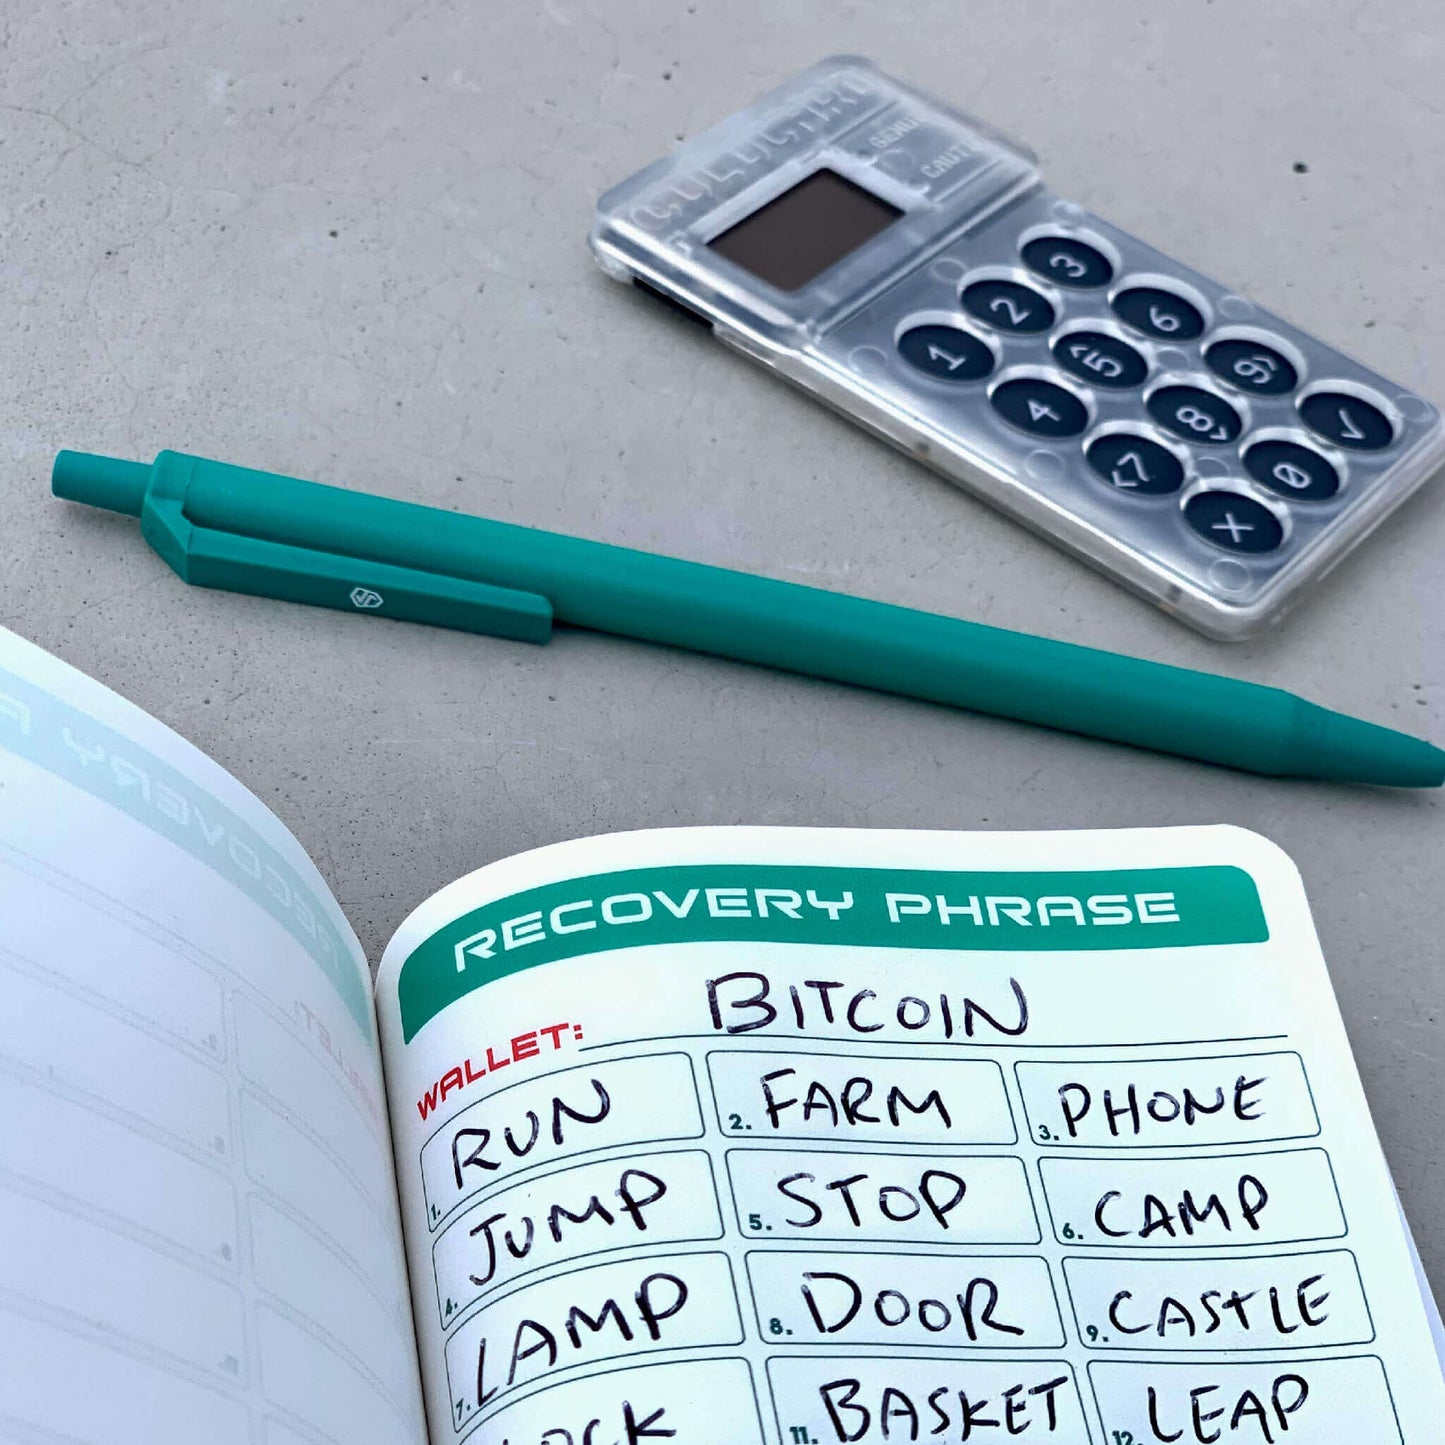 GENU
CAUTI
3
2 6
1 <5 9>
4 8> ✓
<7 0
X
RECOVERY PHRASE
WALLET: BITCOIN
1. RUN 2. FARM 3. PHONE
4. JUMP 5. STOP 6. CAMP
7. LAMP 8. DOOR 9. CASTLE
11. BASKET 12. LEAP